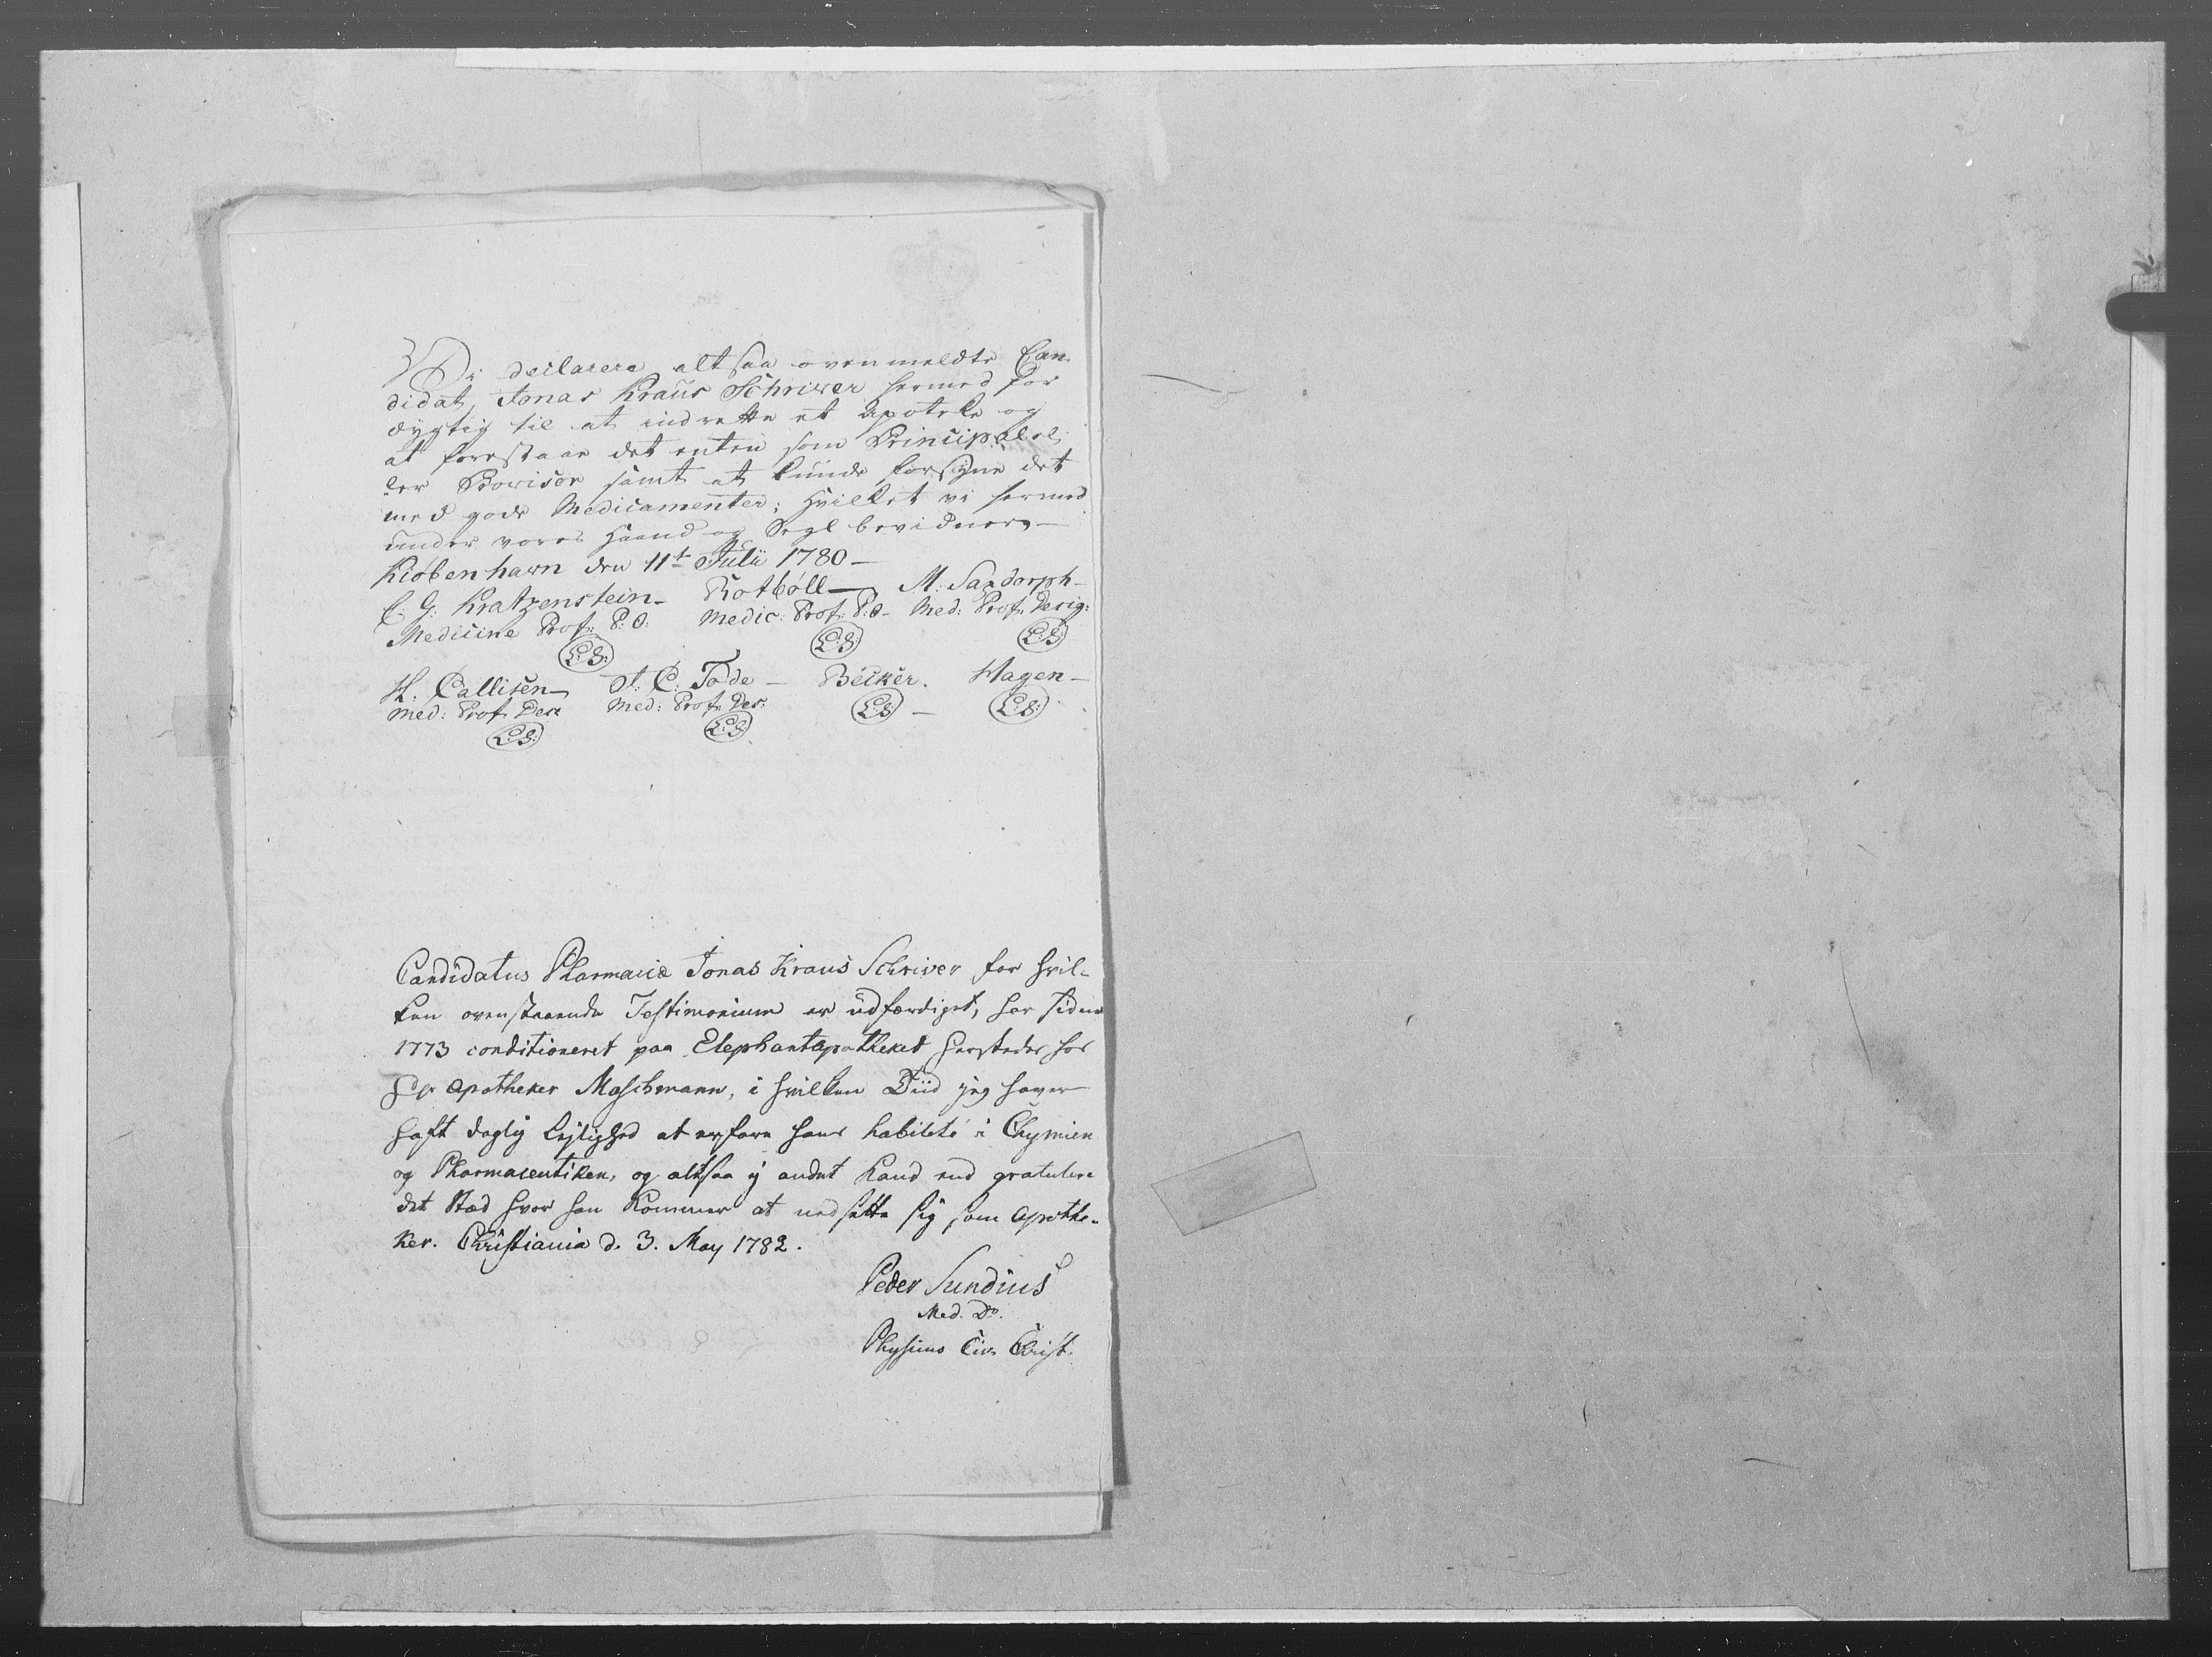 Vi declarere altsaa ovenmeldte Can-
didat, Jonas Kraus Schriver hermed for
dygtig til at indrette et Apoteke og
at forestaae det enten som Principal el-
ler Provisor samt at kunde forsyne det
med gode Medicamenter; Hvilket vi hermed
under vores Haand og Segl bevidner,-
Kiøbenhavn den 11t Julii 1780 -
C. G. Kratzenstein- Rotbøll- M: Saxtorph-
Medicine Prof: P: O: Medic: Prof: P:O- Med: Prof: Desig:
L:S: L:S: L:S:
H. Callisen- J: C: Tode - Becker. Hagen-
Med: Prof: Des: Med: Prof: Des: L:S - L:S:
L:S: L:S:
Candidatus Pharmaciæ Jonas Kraus Schriver for hvil-
ken ovenstaaende Testimonium er udfærdiget, har siden
1773 conditioneret paa Elephantapotheket hersteder hos
Hr Apotheker Maschmann, i hvilken Tiid jeg haver
haft daglig Lejlighed at erfare hans habileté i Chymien
og Pharmaceutiken, og altsaa ej andet kand end gratulere
det Stæd hvor han kommer at nedsætte sig som Apothe-
ker. Christiania d. 3. May 1782.
Peder Sundius
Med. Dr.
Physicus Civ. Christ.